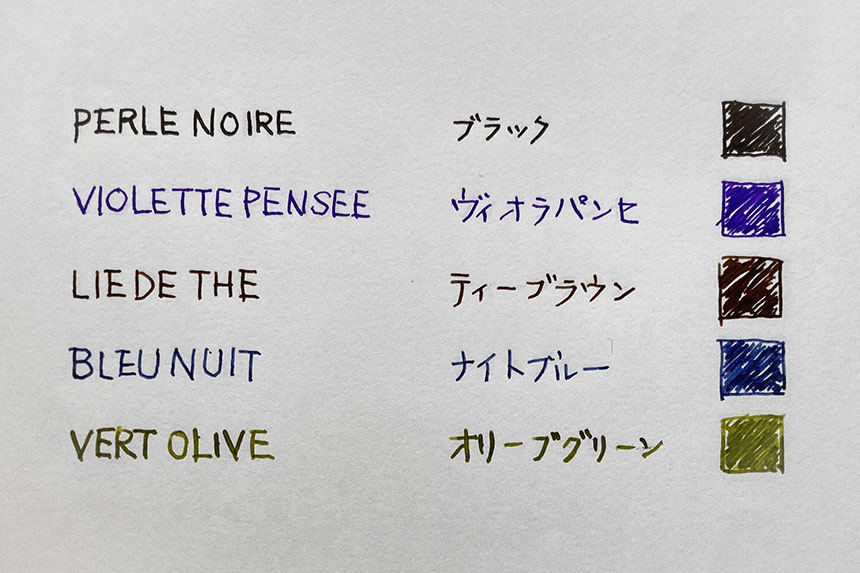 PERLE NOIRE ブラック
VIOLETTE PENSEE ヴィオラパンセ
LIE DE THE ティーブラウン
BLEU NUIT ナイトブルー
VERT OLIVE オリーブグリーン